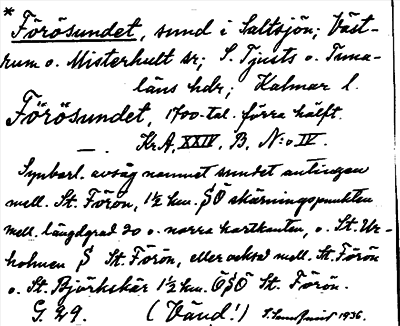 *
Förösundet, sund i Saltsjön; Väst-
rum o. Misterhult sr; S. Tjusts o. Tuna-
läns hdr; Kalmar l.
Förösundet, 1700-tal. förra hälft.
—. Kr.A, XXIV, B, N:o IV.
Synbarl. avsåg namnet sundet antingen
mell. St. Förön, 1½ km. SÖ skärningspunkten
mell. längdgrad 20 o. norra kartkanten, o. St. Ur-
holmen S St. Förön, eller också mell. St. Förön
o. St. Björkskär 1½ km. ÖSÖ St. Förön.
G. 29. (Vänd!) 1936.